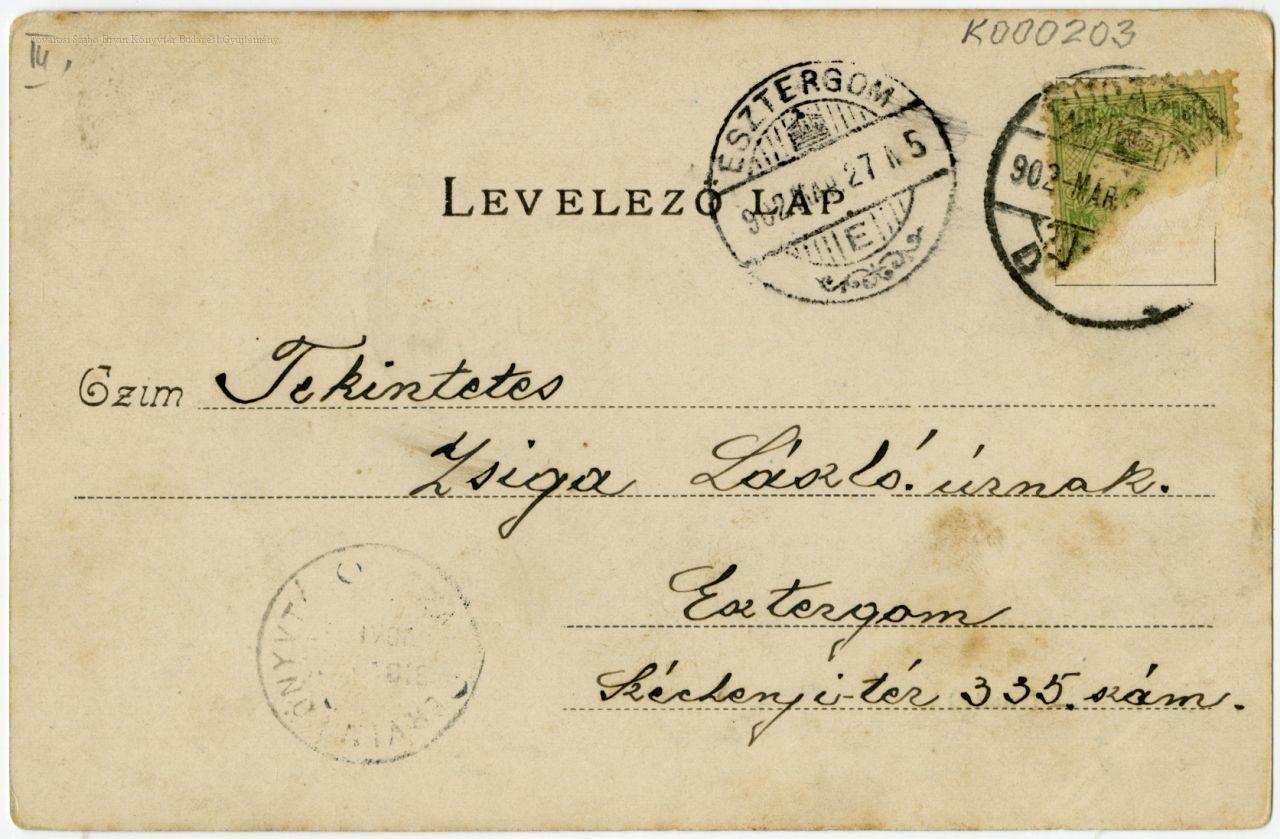 Fővárosi Szabó Ervin Könyvtár Budapest Gyűjtemény
III.
K000203
ESZTERGOM
902 MAR 27 N 5
E
902 MAR
D
LEVELEZŐ LAP
Czim Tekintetes
Zsiga László úrnak.
Esztergom
Széchenyi-tér 335. szám.
ERVIN KÖNYVT